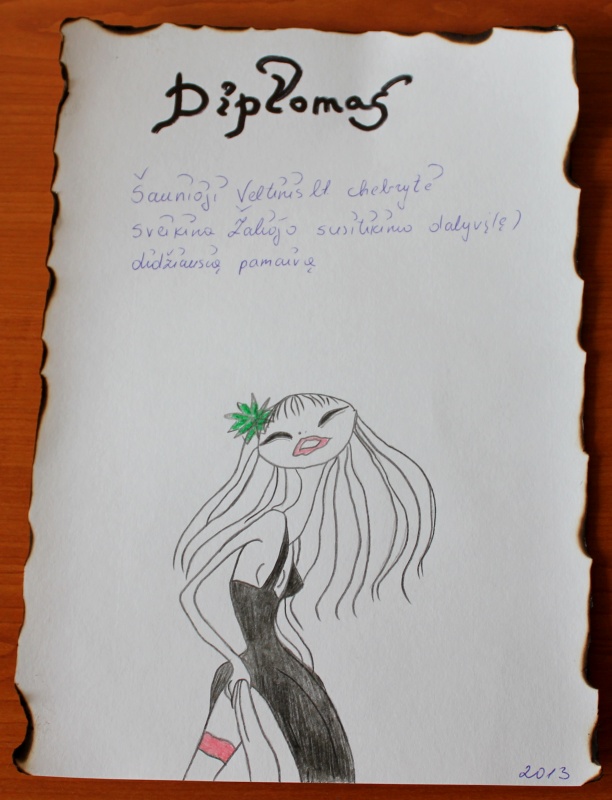 Diplomas
Šaunioji Veltinis.lt chebrytė
sveikina Žaliojo susitikimo dalyvį(ę)
didžiausią pamaivą
2013